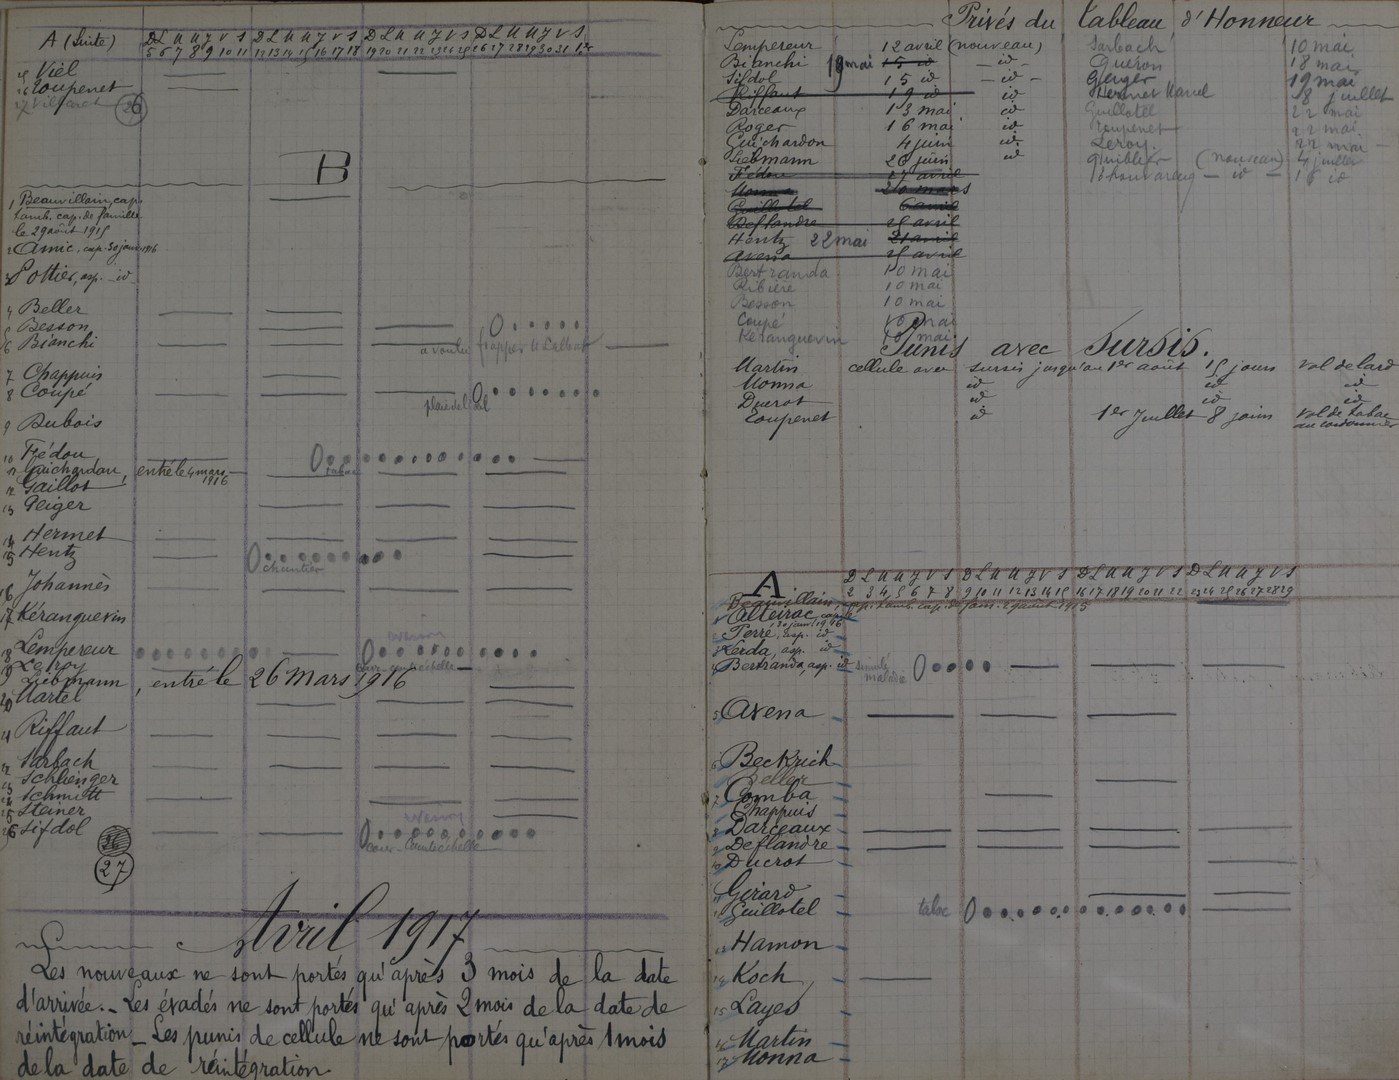 A (Suite)
D L M M J V S D L M M J V S D L M M J V S D L M M J V S
5 6 7 8 9 10 11 12 13 14 15 16 17 18 19 20 21 22 23 24 25 26 27 28 29 30 31
25 Viel
26 Toupenet
26
B
1 Beauvillain, cap.
tamb. cap. de famille
le 29 août 1915
2 Amic, cap. 30 janv. 1916
3 Pottier, asp. id
4 Beller
5 Besson
6 Bianchi a voulu frapper
7 Chappuis
8 Coupé
9 Dubois
10 Fédou tabac
11 Guichardon, entré le 4 mars 1916
12 Gaillot
13 Geiger
14 Hermet
15 Hentz chantier
16 Johannès
17 Kéranguevin
18 Lempereur évasion
19 Leroy
Liebmann, entré le 26 Mars 1916
20 Martel
21 Riffaut
22 Sarbach
23 Schlienger
24 Schmitt
25 Steiner
26 Sifdol évasion
27
Avril 1917
Les nouveaux ne sont portés qu'après 3 mois de la date
d'arrivée. _ Les évadés ne sont portés qu'après 2 mois de la date de
réintégration _ Les punis de cellule ne sont portés qu'après 1 mois
de la date de réintégration.
Privés du tableau d'Honneur
Lempereur 12 avril (nouveau)
Bianchi 19 mai 15 id - id -
Sifdol 15 id - id -
Riffaut 19 id id
Darceaux 13 mai id
Roger 16 mai id
Guichardon 4 juin id
Liebmann 26 juin id
Fédou 17 avril
Monna 20 mars
Guillotel 6 avril
Deflandre 25 avril
Hentz 22 mai 21 avril
Avena 25 avril
Bertranda 10 mai
Ribière 10 mai
Besson 10 mai
Coupé 10 mai
Kéranguevin 10 mai
Sarbach 10 mai
Queron 18 mai
Geiger 19 mai
Hermet 8 juillet
Guillotel 22 mai
Toupenet 22 mai
Leroy 22 mai
Quiblier (nouveau) 4 juillet
- id - 15 id
Punis avec Sursis.
Martin cellule avec sursis jusqu'au 1er août 15 jours vol de lard
Monna id id id
Ducrot id id id
Toupenet id 1er Juillet 8 jours vol de tabac
au cordonnier
A
D L M M J V S D L M M J V S D L M M J V S D L M M J V S
2 3 4 5 6 7 8 9 10 11 12 13 14 15 16 17 18 19 20 21 22 23 24 25 26 27 28 29
Beauvillain, cap. tamb. cap. de fam. 29 août 1915
1 Alleirac, cap. 30 janv. 1916
2 Ferré, asp. id
3 Lerda, asp. id
4 Bertranda, asp. id simulé maladie
5 Avena
6 Beckrich
Beller
7 Comba
Chappuis
8 Darceaux
9 Deflandre
10 Ducrot
11 Girard
12 Guillotel tabac
13 Hamon
14 Koch
15 Layes
16 Martin
17 Monna